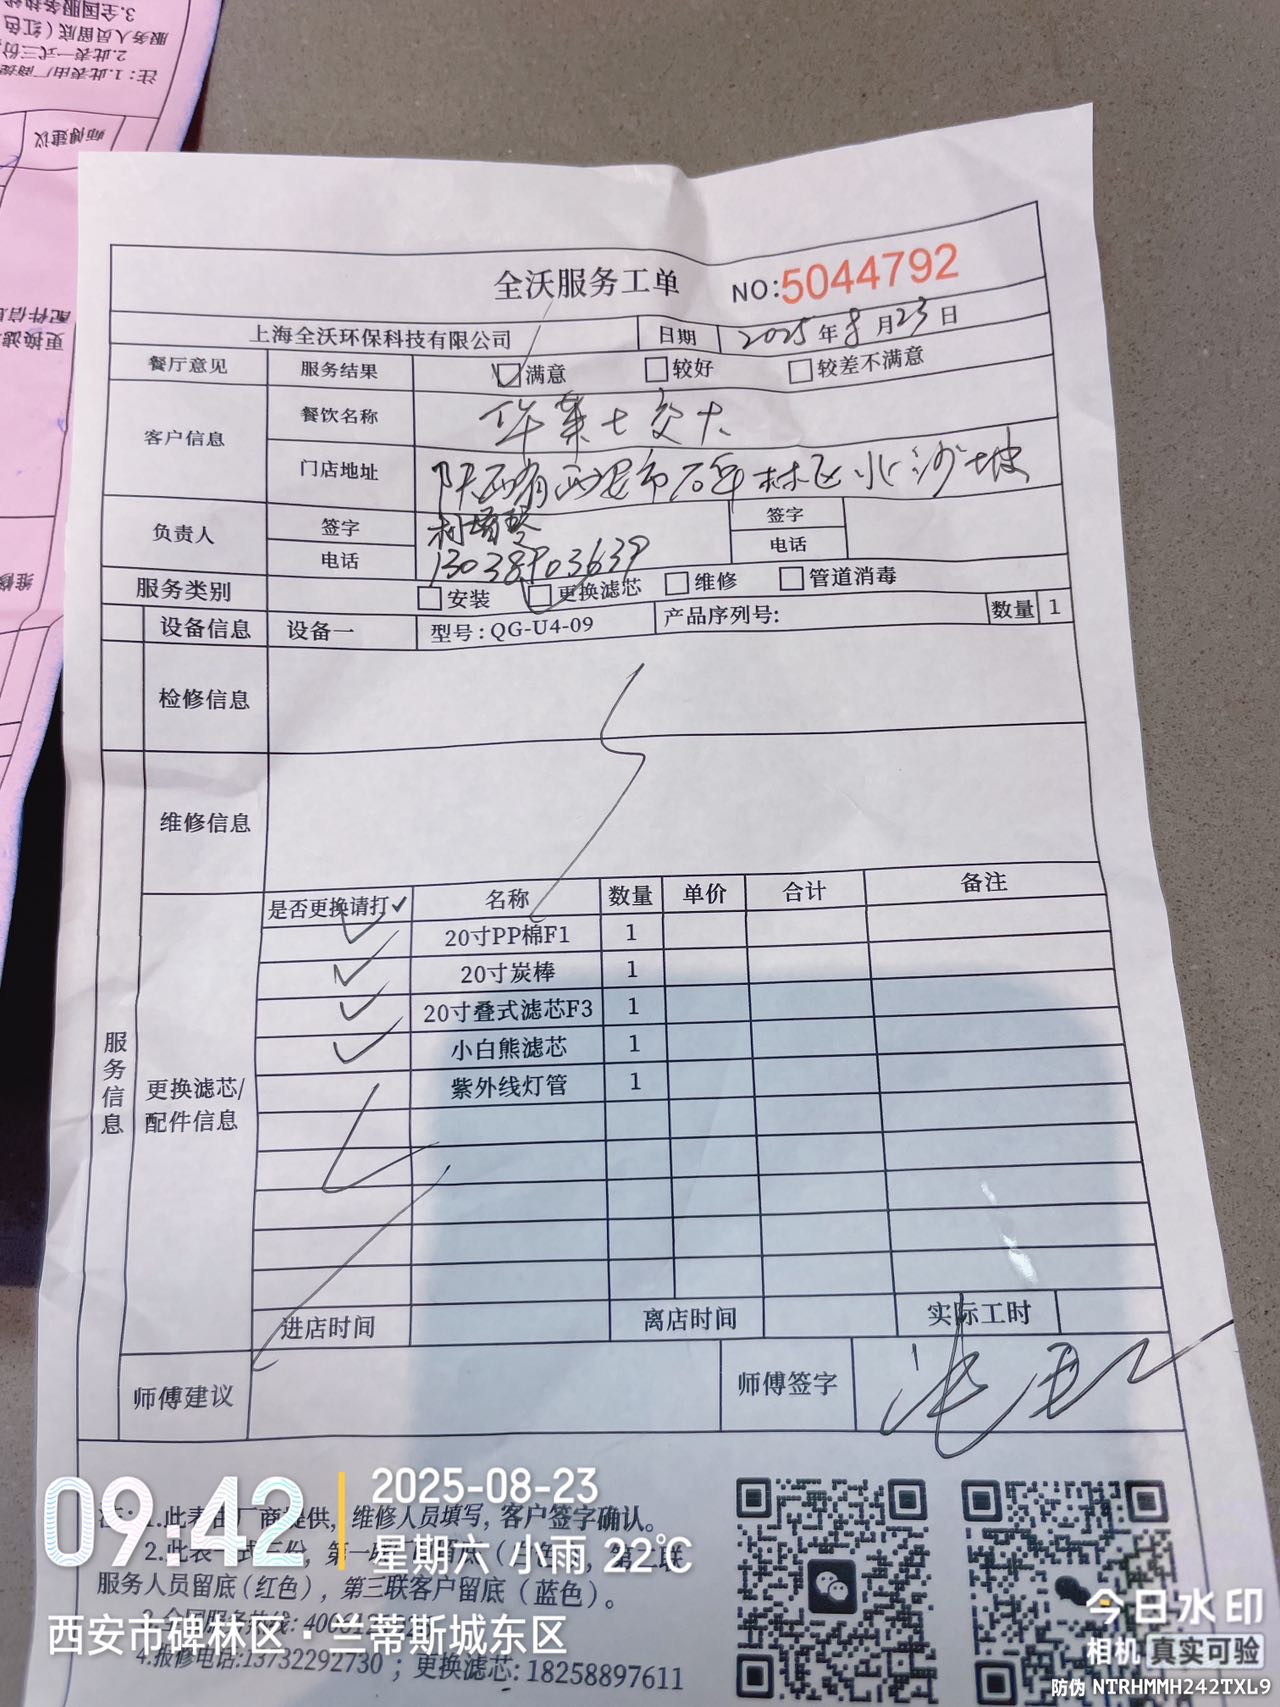 3.全国服务热线
服务人员留底（红色
2.此表一式三份
注：1.此表由厂商提
师傅建议
配件信息
更换滤
维修
全沃服务工单 NO:5044792
上海全沃环保科技有限公司 日期 2025年8月23日
餐厅意见 服务结果 满意 较好 较差不满意
客户信息 餐饮名称 华莱士交大
门店地址 陕西省西安市碑林区水沙坡
负责人 签字 签字
电话 13038903639 电话
服务类别 安装 更换滤芯 维修 管道消毒
设备信息 设备一 型号:QG-U4-09 产品序列号: 数量 1
检修信息
维修信息
服务信息
更换滤芯/配件信息
是否更换请打✓ 名称 数量 单价 合计 备注
✓ 20寸PP棉F1 1
✓ 20寸炭棒 1
✓ 20寸叠式滤芯F3 1
✓ 小白熊滤芯 1
紫外线灯管 1
进店时间 离店时间 实际工时
师傅建议 师傅签字
注:1.此表由厂商提供，维修人员填写，客户签字确认。
2.此表一式三份，第一联 留底（白色），第二联
服务人员留底(红色)，第三联客户留底（蓝色）。
3.全国服务热线:400
4.报修电话:13732292730；更换滤芯:18258897611
09:42
2025-08-23
星期六 小雨 22℃
西安市碑林区·兰蒂斯城东区
今日水印
相机 真实可验
防伪 NTRHMMH242TXL9